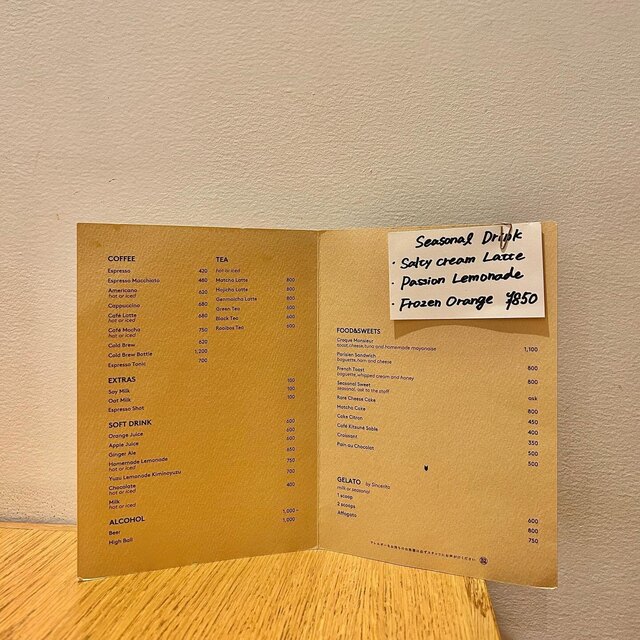 COFFEE
Espresso 420
Espresso Macchiato 460
Americano 620
hot or iced
Cappuccino 680
Café Latte 680
hot or iced
Café Mocha 750
hot or iced
Cold Brew 620
Cold Brew Bottle 1,200
Espresso Tonic 700
EXTRAS
Soy Milk 100
Oat Milk 100
Espresso Shot 100
SOFT DRINK
Orange Juice 600
Apple Juice 600
Ginger Ale 600
Homemade Lemonade 650
hot or iced
Yuzu Lemonade Kiminoyuzu 750
Chocolate 700
hot or iced
Milk 400
hot or iced
ALCOHOL
Beer 1,000~
High Ball 1,000
TEA
hot or iced
Matcha Latte 800
Hojicha Latte 800
Genmaicha Latte 800
Green Tea 600
Black Tea 600
Rooibos Tea 600
Seasonal Drink
・Salty Cream Latte
・Passion Lemonade
・Frozen Orange ¥850
FOOD&SWEETS
Croque Monsieur
toast, cheese, tuna and homemade mayonaise 1,100
Parisien Sandwich
baguette, ham and cheese 800
French Toast
baguette, whipped cream and honey 800
Seasonal Sweet
seasonal, ask to the staff ask
Rare Cheese Cake 800
Matcha Cake 450
Cake Citron 400
Café Kitsuné Sable 350
Croissant 500
Pain au Chocolat 500
GELATO by Sincerita
milk or seasonal
1 scoop 600
2 scoops 800
Affogato 750